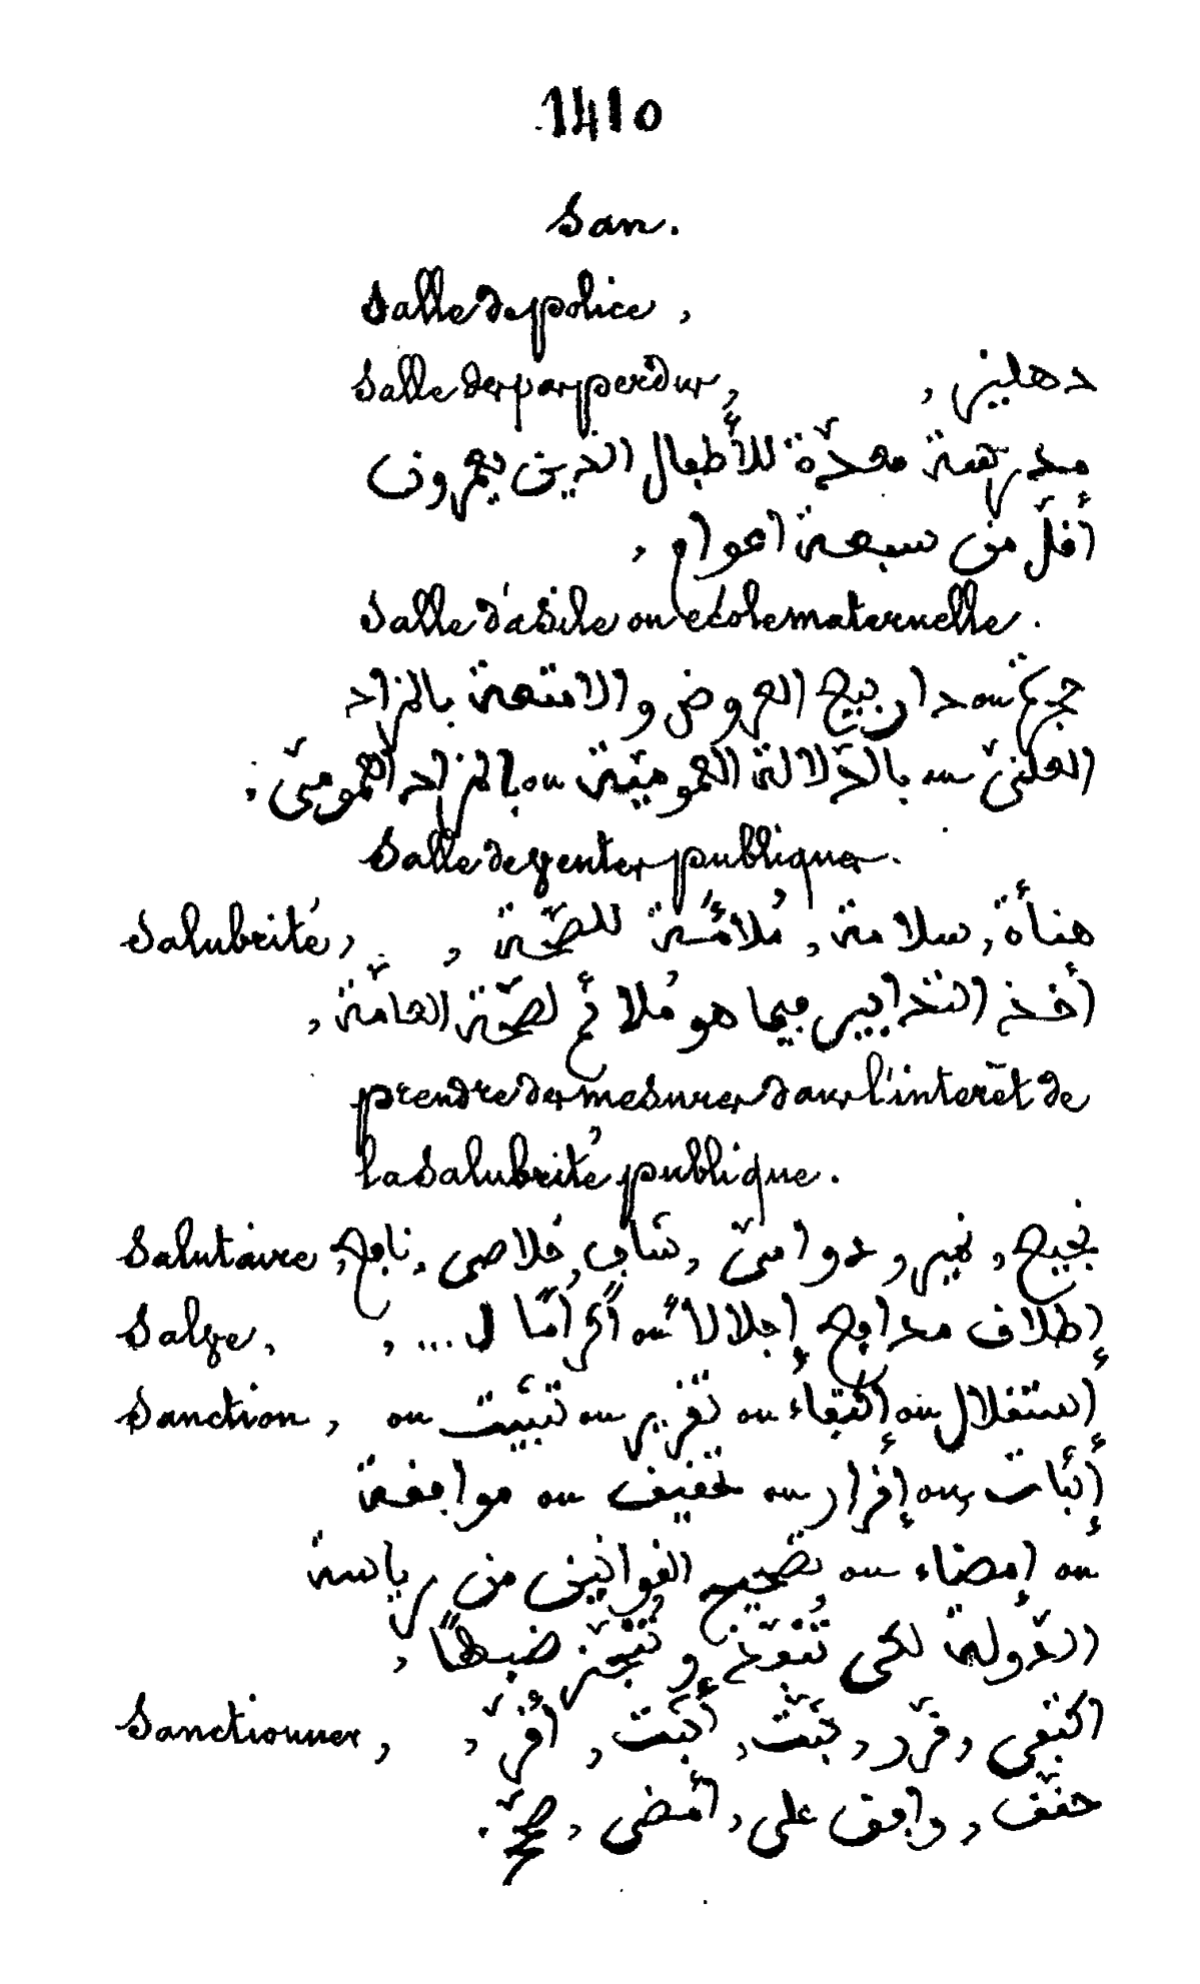 1410
San.
Salle de police,
Salle des pas perdus, دهليز,
مدرسة معدّة للأطفال الذين يعمرون
أقلّ من سبعة اعوام,
Salle d'asile ou école maternelle.
حجرة ou دار بيع العروض والامتعة بالمزاد
العلنيّ ou بالدّلالة العموميّة ou بالمزاد العموميّ.
Salle de ventes publiques.
Salubrité, هنأة, سلامة, مُلائمة للصّحّة,
أخذ التدابير فيما هو مُلائم لصحّة العامّة,
prendre des mesures dans l'interêt de
la salubrité publique.
Salutaire نجيح, خير, دواميّ, شاف, خلاصي, نافع,
Salve, إطلاق مدافع إجلالاً ou أكرامًا ل... ,
Sanction, إستقلال ou إكتفاء ou تقرير ou تثبيت ou
إثبات ou إقرار ou تحقيق ou موافقة
ou إمضاء ou تصحيح القوانين من رياسة
الدّولة لكي تُنَفَّذ وتُنَجَّز ضبطًا,
Sanctionner, اكتفى, قرّر, ثبّت, أثبت, أقرّ,
حقّق, وافق على, أمضى, صحّح.